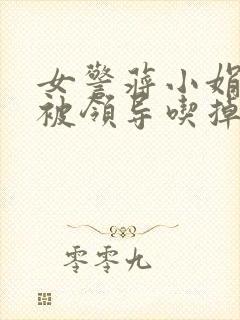 女警蒋小娟
被领导喫掉
零零九